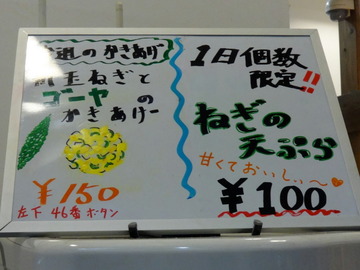 選のかきあげ
新玉ねぎと
ゴーヤの
かきあげー
¥150
左下 46番ボタン
1日個数
限定!!
ねぎの
天ぷら
甘くておいしぃ〜
¥100